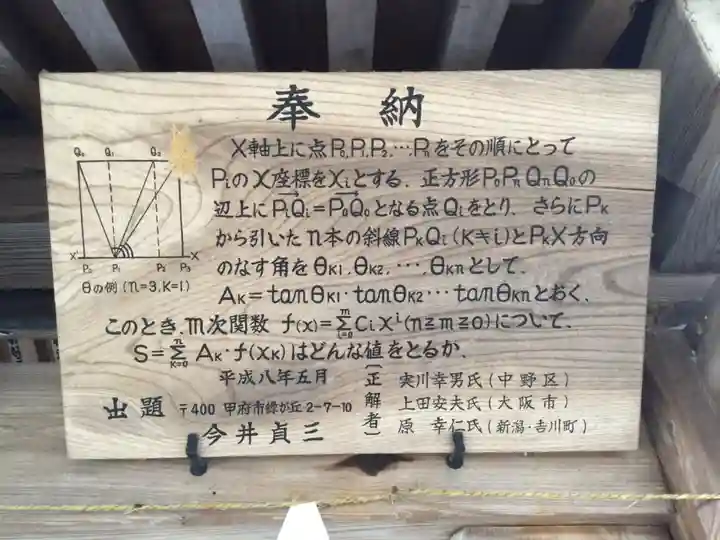 奉納
X軸上に点P₀,P₁,P₂,…,Pₙをその順にとって
Pᵢのχ座標をχᵢとする. 正方形P₀PₙQₙQ₀の
辺上に→PᵢQᵢ=→P₀Q₀となる点Qᵢをとり. さらにPK
から引いたn本の斜線PKQᵢ(K≠i)とPKX方向
のなす角をθK1,θK2,…,θKnとして.
AK=tanθK1・tanθK2…tanθKnとおく.
このとき.m次関数 f(x)=Σ[i=0→m]Cᵢχⁱ(n≧m≧0)について.
S=Σ[K=0→n]AK・f(χK)はどんな値をとるか.
Q₀ Q₁ Q₂
X' X
P₀ P₁ P₂ P₃
θの例(n=3,K=1.)
平成八年五月
出題 〒400 甲府市緑が丘2-7-10
今井貞三
(正解者)
実川幸男氏(中野区)
上田安夫氏(大阪市)
原 幸仁氏(新潟・吉川町)